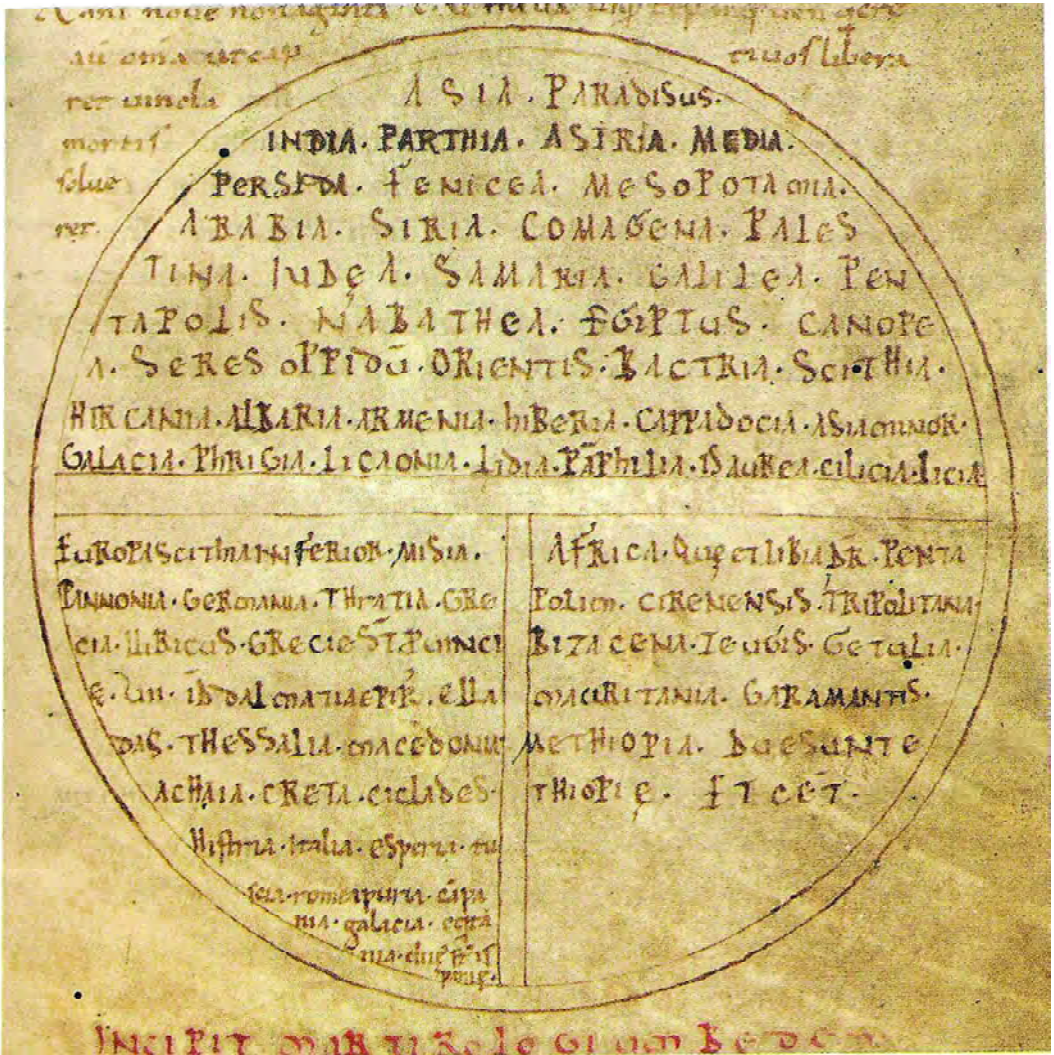 au omia ut cap tiuos libera
ret uincla
mortis
solue
ret.
ASIA. PARADISUS.
INDIA. PARTHIA. ASIRIA. MEDIA.
PERSIDA. FENICEA. MESOPOTAMIA.
ARABIA. SIRIA. COMAGENA. PALES
TINA. IUDEA. SAMARIA. GALILEA. PEN
TAPOLIS. NABATHEA. EGIPTUS. CANOPE
A. SERES OPPIDŪ. ORIENTIS. BACTRIA. SCITHIA.
HIRCANIA. ALBARIA. ARMENIA. hIBERIA. CAPPADOCIA. ASIA MINOR.
GALACIA. PhRIGIA. LICAONIA. LIDIA. PĀPhILIA. ISAUREA. CILICIA. LICIA
EUROPA SCITHIA INFERIOR. MISIA.
PINNONIA. GERMANIA. THRATIA. GRE
CIA. ILIRICUS. GRECIE ST PUINCI
E. UII. DALMATIA EPIR. ELLA
DAS. THESSALIA. MACEDONIA
ACHAIA. CRETA. CICLADES.
Histria. italia. esperia. tu
scia. rome apuria. cāpa
nia. galacia. eqtā
nia. due
AFRICA. QUE ET LIBIA DR. PENTA
POLIM. CIRENENSIS. TRIPOLITANA.
BIZACENA. ZEUGIS. GETULIA.
MAURITANIA. GARAMANTIS.
METHIOPIA. DUE SUNT E
THIOPIE. ET CET.
INCIPIT MARTIROLOGIUM BEDE